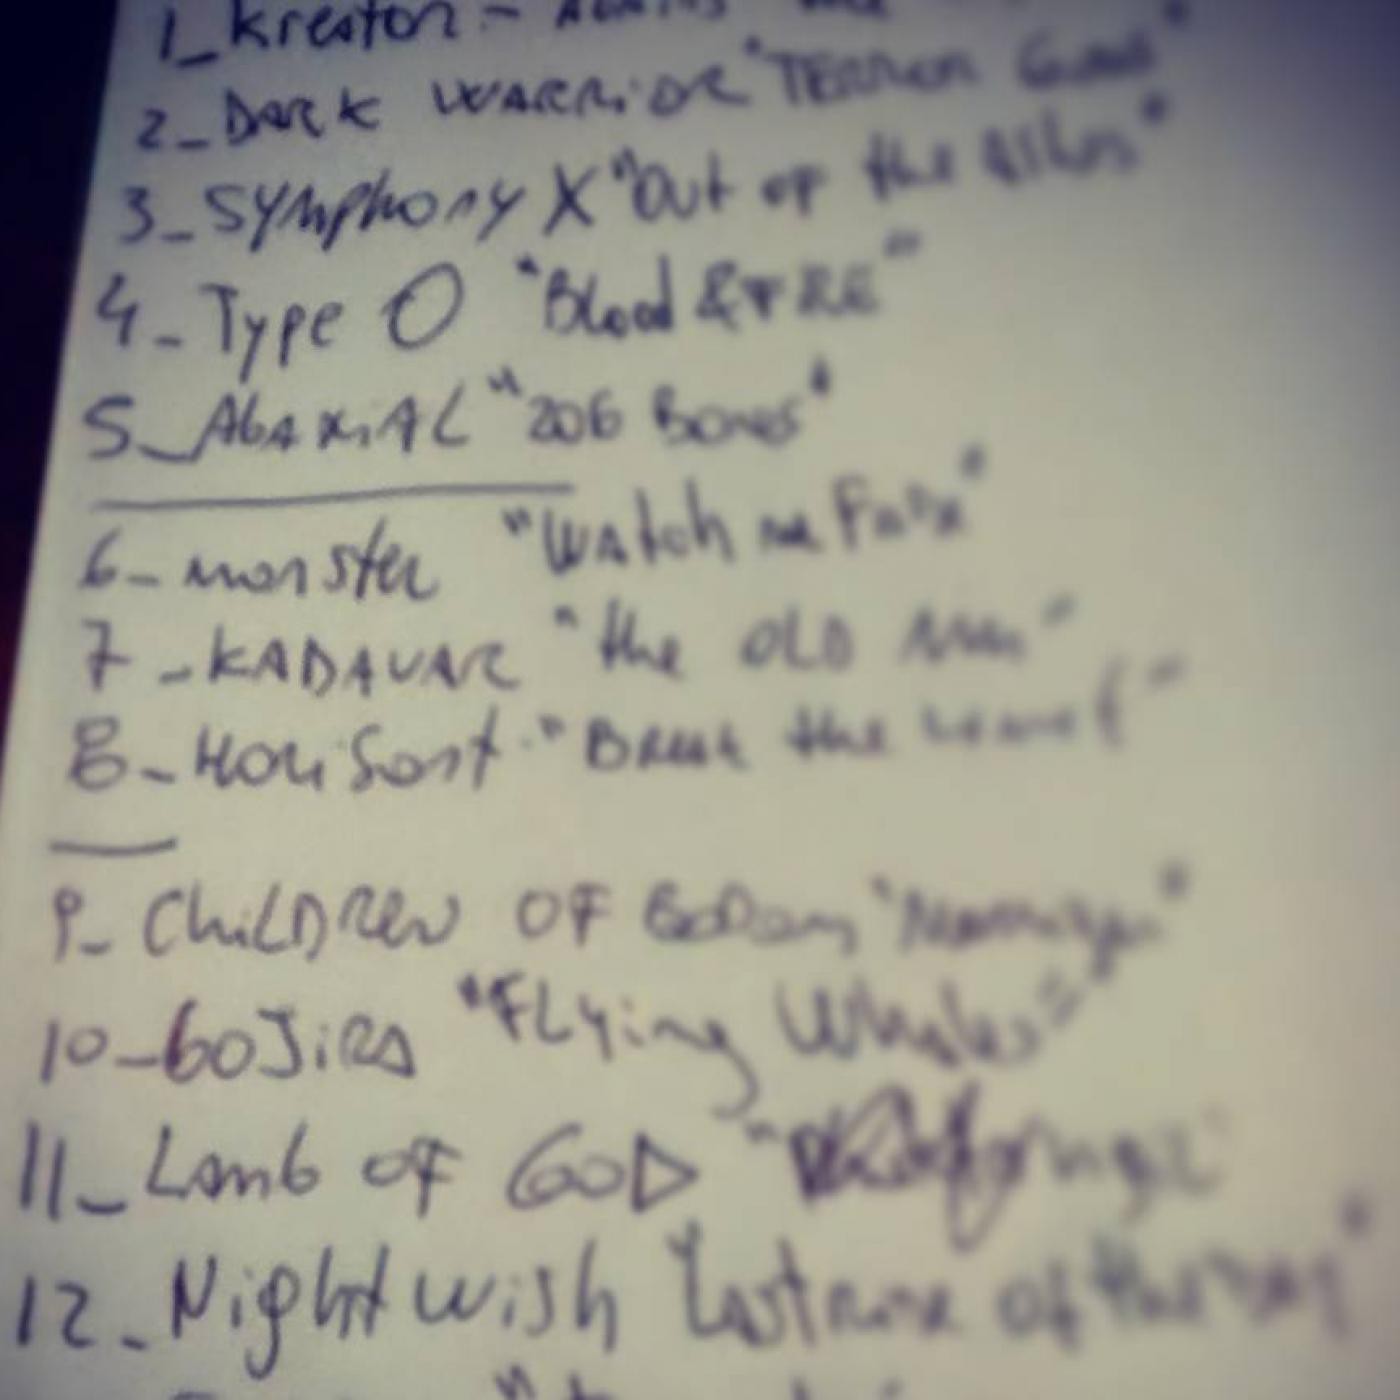 1_Kreator -
2_DARK WARRIOR "TERROR
3_SYMphony X "Out of the Ashes"
4_Type O "Blood & FIRE"
5_AbAxiAL "206 Bones"
6_monster "Watch me Fade"
7_KADAVAR "the OLD Man"
8_HoriSont "Break the
9_ChiLDREN OF BoDom
10_GoJiRA "FLying Whales"
11_Lamb of GOD
12_Nightwish "Last ride of the Day"